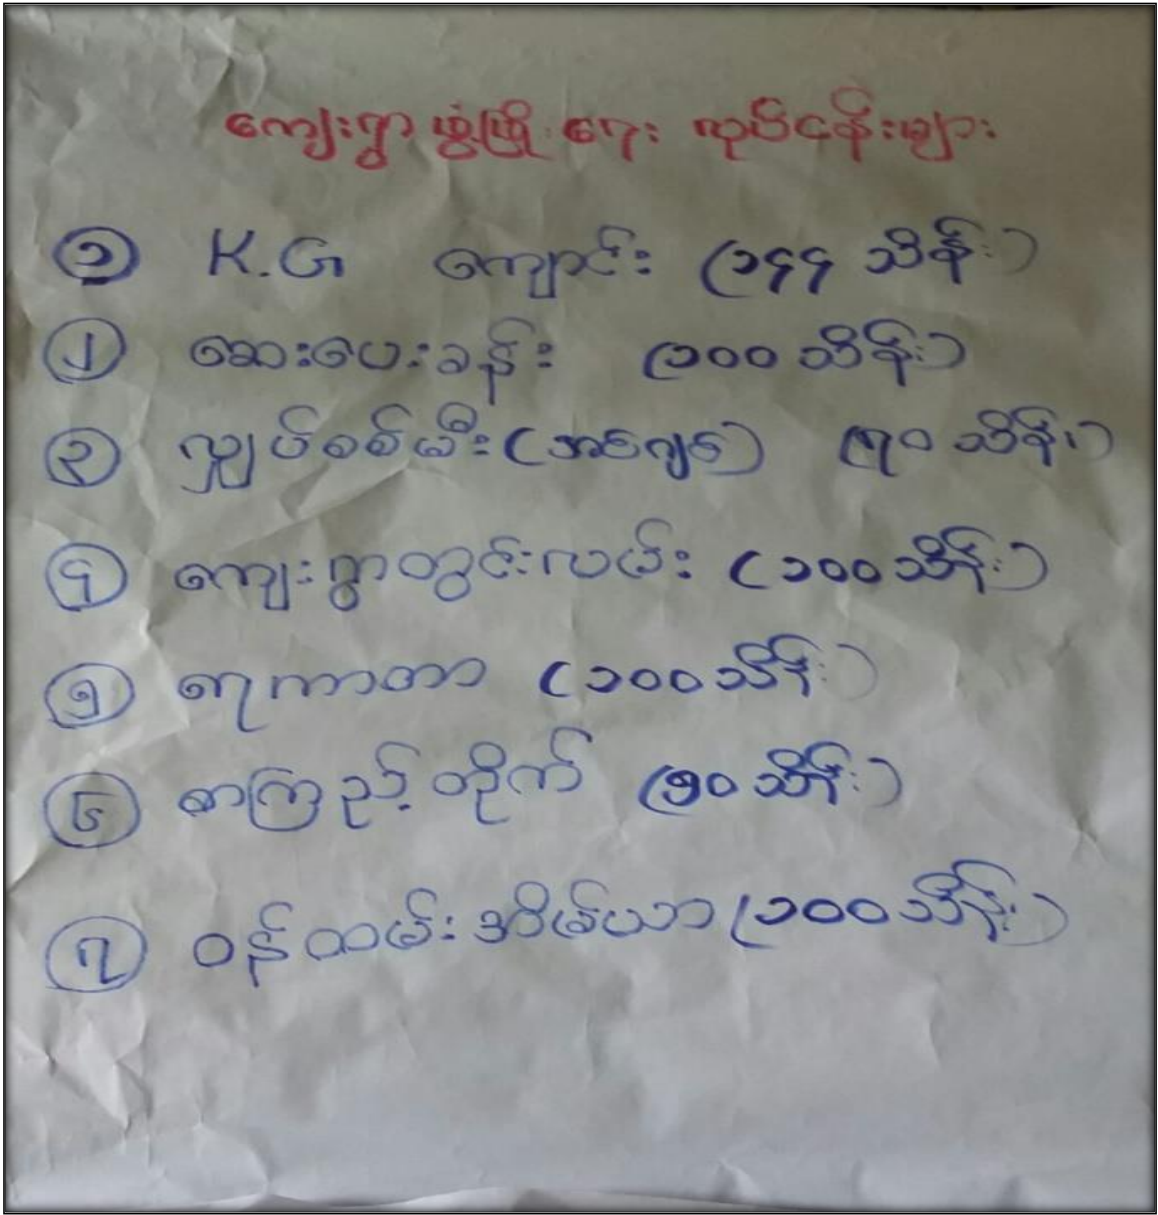 ကျေးရွာ ဖွံ့ဖြိုးရေး လုပ်ငန်းများ
၁ K.G ကျောင်း (၁၄၄ သိန်း)
၂ ဆေးပေးခန်း (၁၀၀ သိန်း)
၃ လျှပ်စစ်မီး (အငွေ့) (၇၀ သိန်း)
၄ ကျေးရွာတွင်းလမ်း (၁၀၀ သိန်း)
၅ ရေကာတာ (၁၀၀ သိန်း)
၆ စာကြည့်တိုက် (၅၀ သိန်း)
၇ ဝန်ထမ်းအိမ်ယာ (၁၀၀ သိန်း)